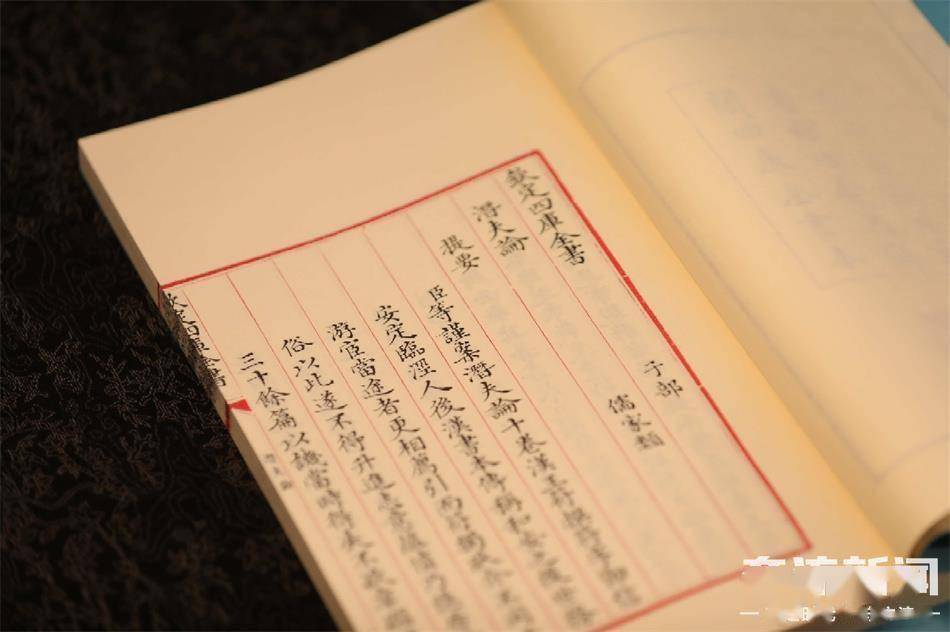 欽定四庫全書
子部
潛夫論
儒家類
提要
臣等謹案潛夫論十卷漢王符撰符字節信
安定臨涇人後漢書本傳稱和安之後世務
游宦當途者更相薦引而符獨耿介不同
俗以此遂不得升進志意蘊憤乃隱
三十餘篇以譏當時得失不欲章顯
欽定四庫全書
潛夫論